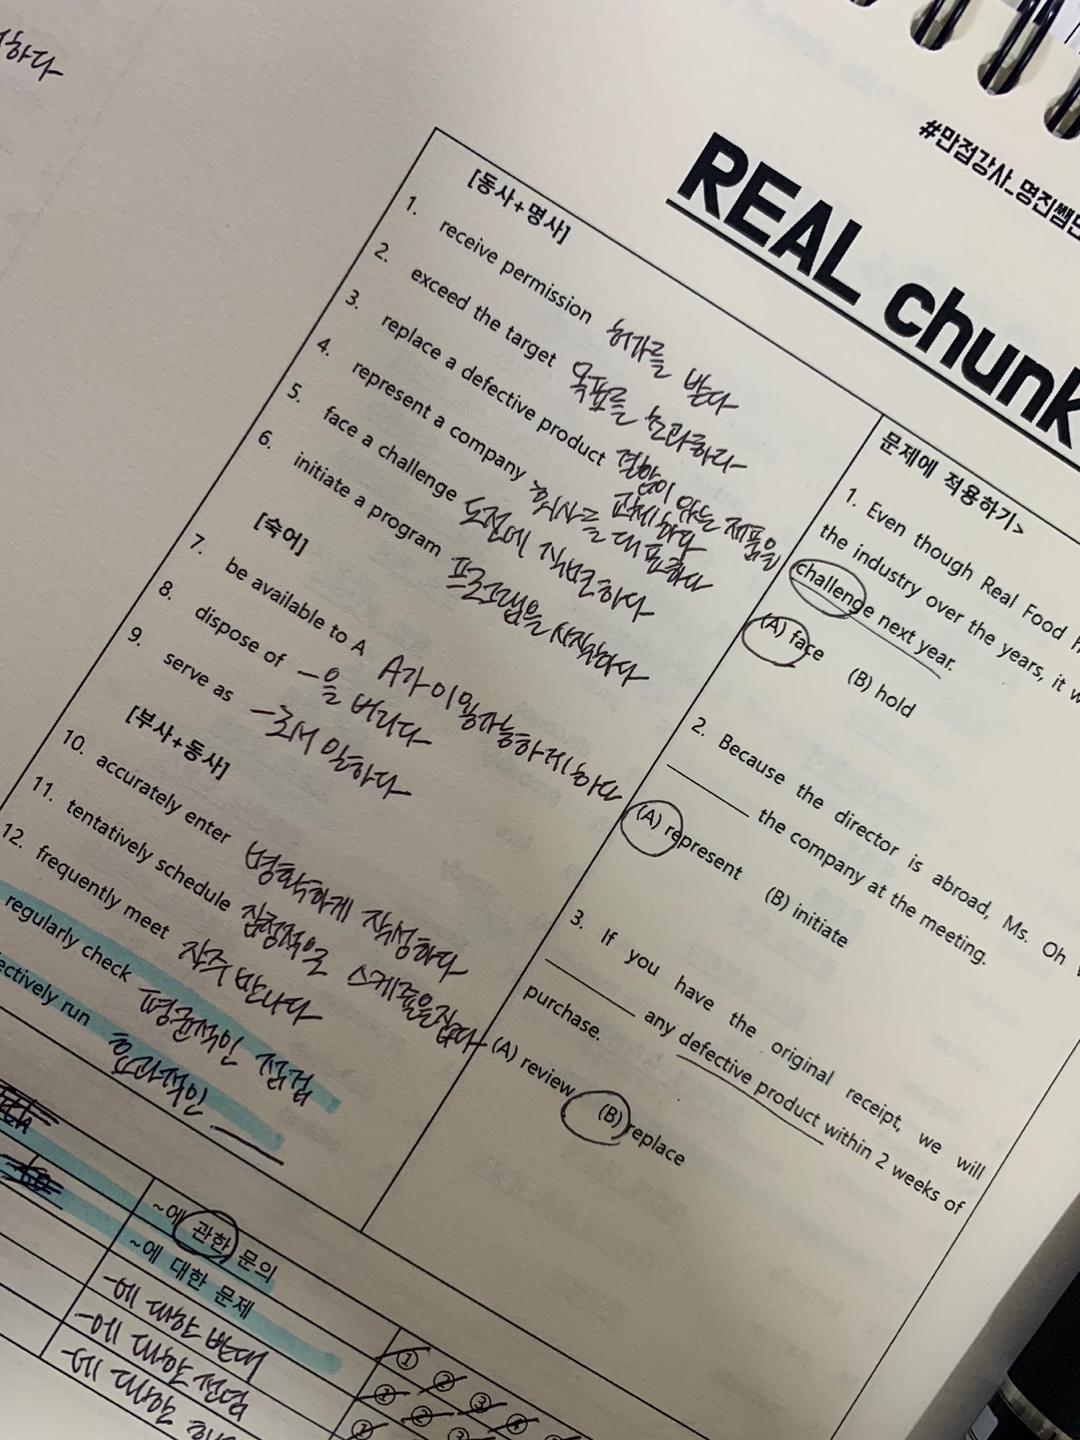 하다
#만점강사_명진쌤
REAL chunk
[동사+명사]
1. receive permission 허가를 받다
2. exceed the target 목표를 초과하다
3. replace a defective product 결함이 있는 제품을
교체하다
4. represent a company 회사를 대표하다
5. face a challenge 도전에 직면하다
6. initiate a program 프로그램을 시작하다
[숙어]
7. be available to A A가 이용가능하게 하다
8. dispose of ~을 버리다
9. serve as ~로서 일하다
[부사+동사]
10. accurately enter 명확하게 작성하다
11. tentatively schedule 잠정적으로 스케줄을 잡다
12. frequently meet 자주 만나다
regularly check 평균적인 점검
ectively run 효과적인
문제에 적용하기>
1. Even though Real Food
the industry over the years, it
challenge next year.
(A) face (B) hold
2. Because the director is abroad, Ms. Oh
the company at the meeting.
(A) represent (B) initiate
3. If you have the original receipt, we will
any defective product within 2 weeks of
purchase.
(A) review (B) replace
~에 관한 문의
~에 대한 문제
~에 대한 반대
~에 대한 전념
~에 대한
① ② ③ ④
① ② ③
①